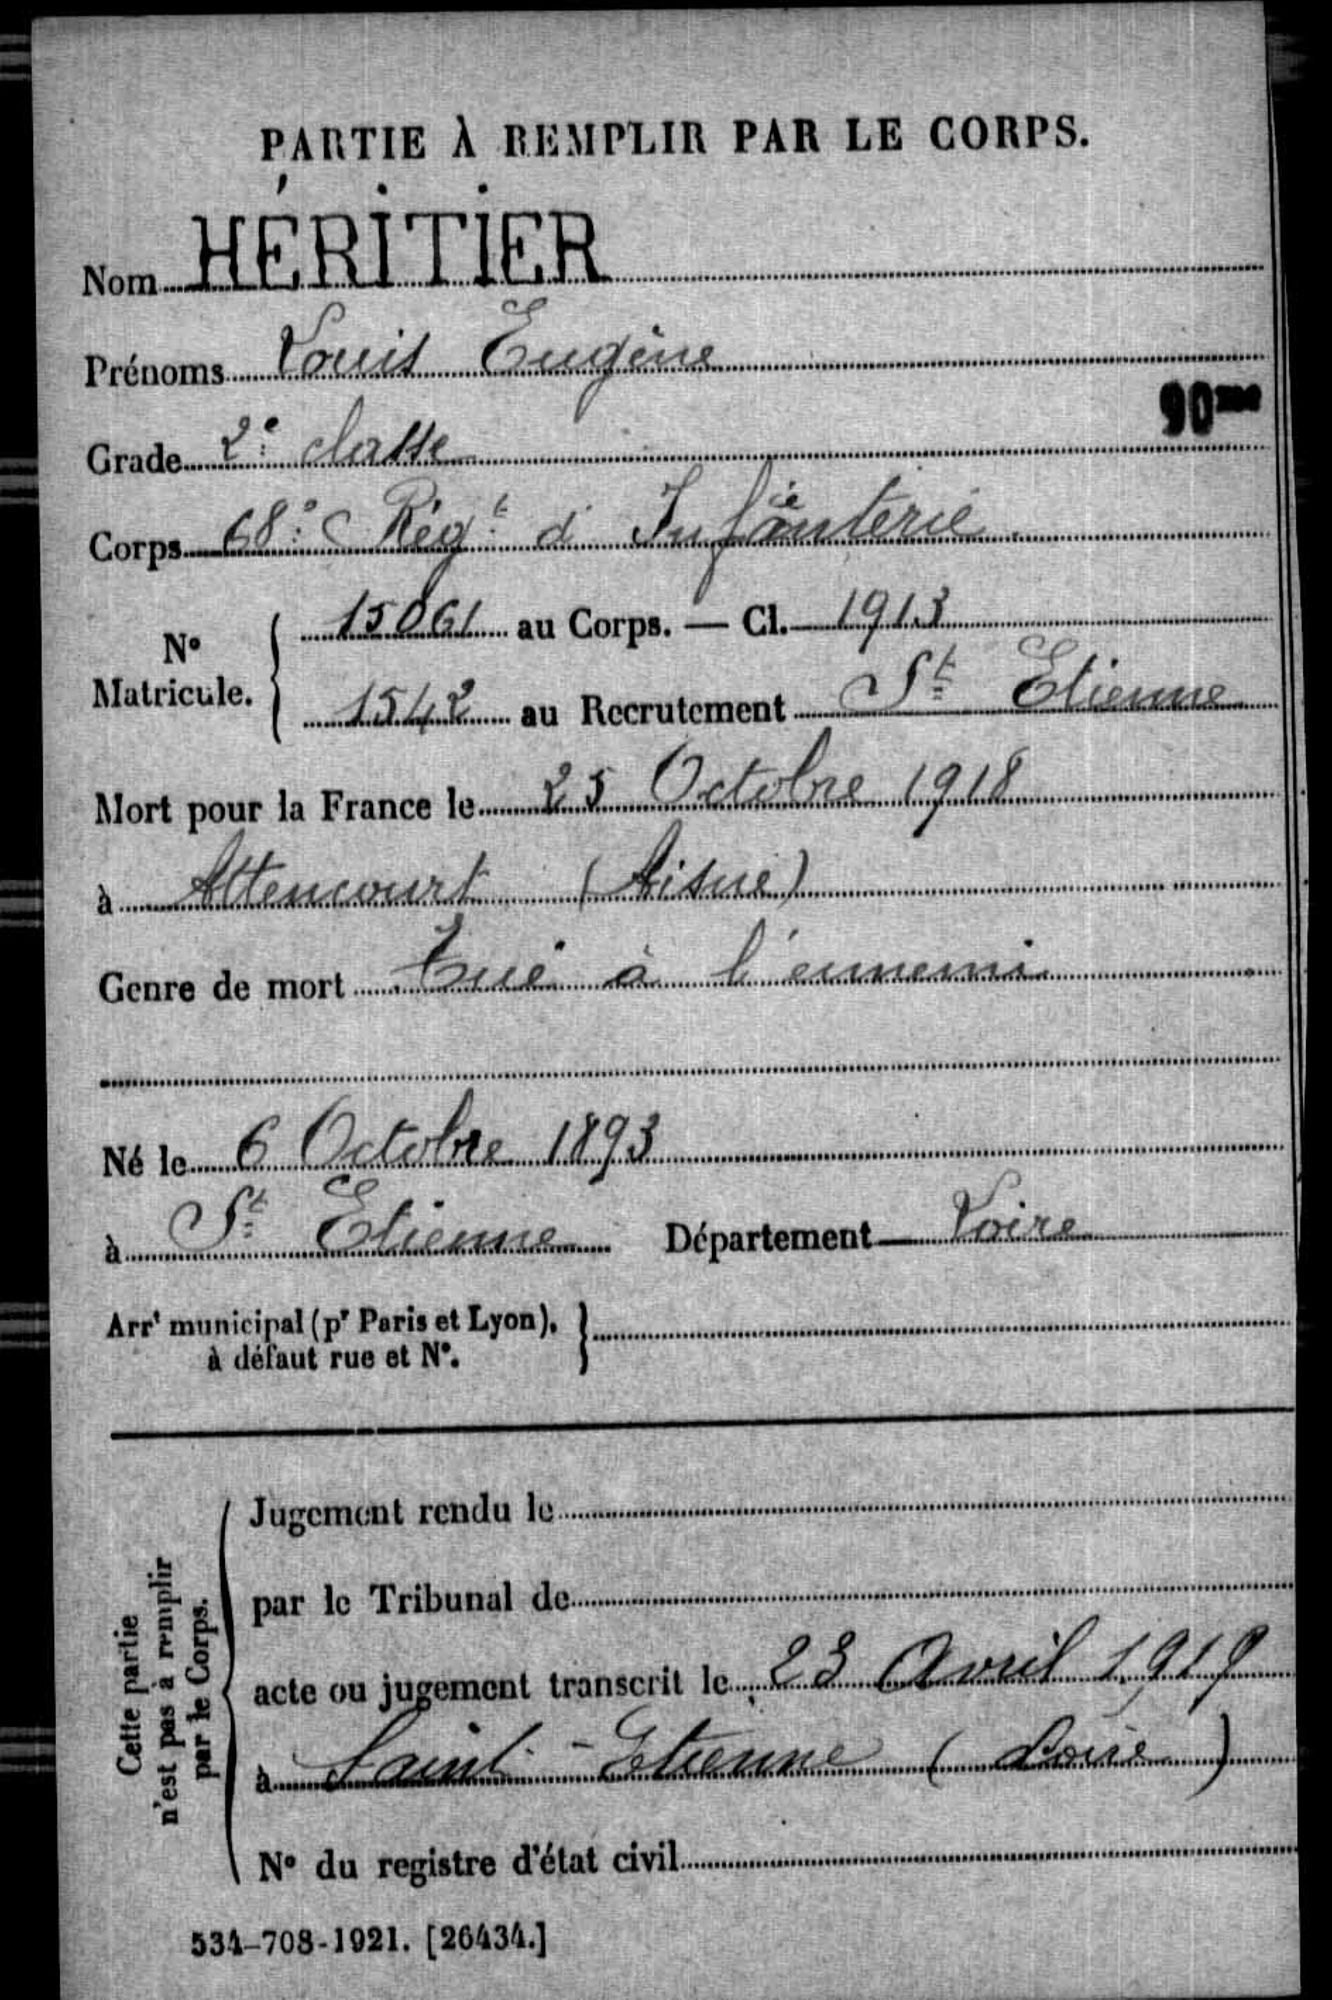 PARTIE À REMPLIR PAR LE CORPS.
Nom HÉRITIER
Prénoms Louis Eugène
90me
Grade 2e classe
Corps 68e Régt d'Infanterie
No Matricule. { 15061 au Corps. — Cl. 1913
1542 au Recrutement St Etienne
Mort pour la France le 25 Octobre 1918
à Attencourt (Aisne)
Genre de mort Tué à l'ennemi
Né le 6 Octobre 1893
à St Etienne Département Loire
Arrt municipal (pr Paris et Lyon), }
à défaut rue et No.
Cette partie
n'est pas à remplir
par le Corps.
Jugement rendu le
par le Tribunal de
acte ou jugement transcrit le 23 Avril 1919
à Saint-Etienne (Loire)
No du registre d'état civil
534-708-1921. [26434.]